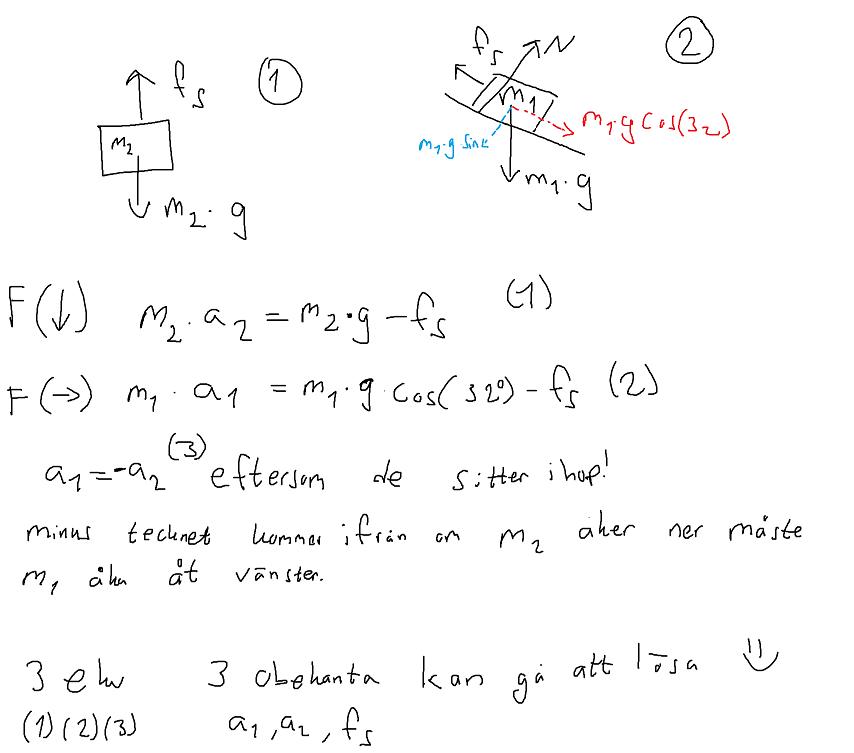 1
f_s
m_2
m_2 · g
2
f_s
N
m_1
m_1·g cos(32)
m_1·g sin
m_1·g
F(↓) m_2 · a_2 = m_2·g - f_s (1)
F(→) m_1 · a_1 = m_1·g·cos(32°) - f_s (2)
a_1 = -a_2 (3) eftersom de sitter ihop!
minus tecknet kommer ifrån om m_2 åker ner måste
m_1 åka åt vänster.
3 ekv 3 obekanta kan gå att lösa
(1)(2)(3) a_1, a_2, f_s